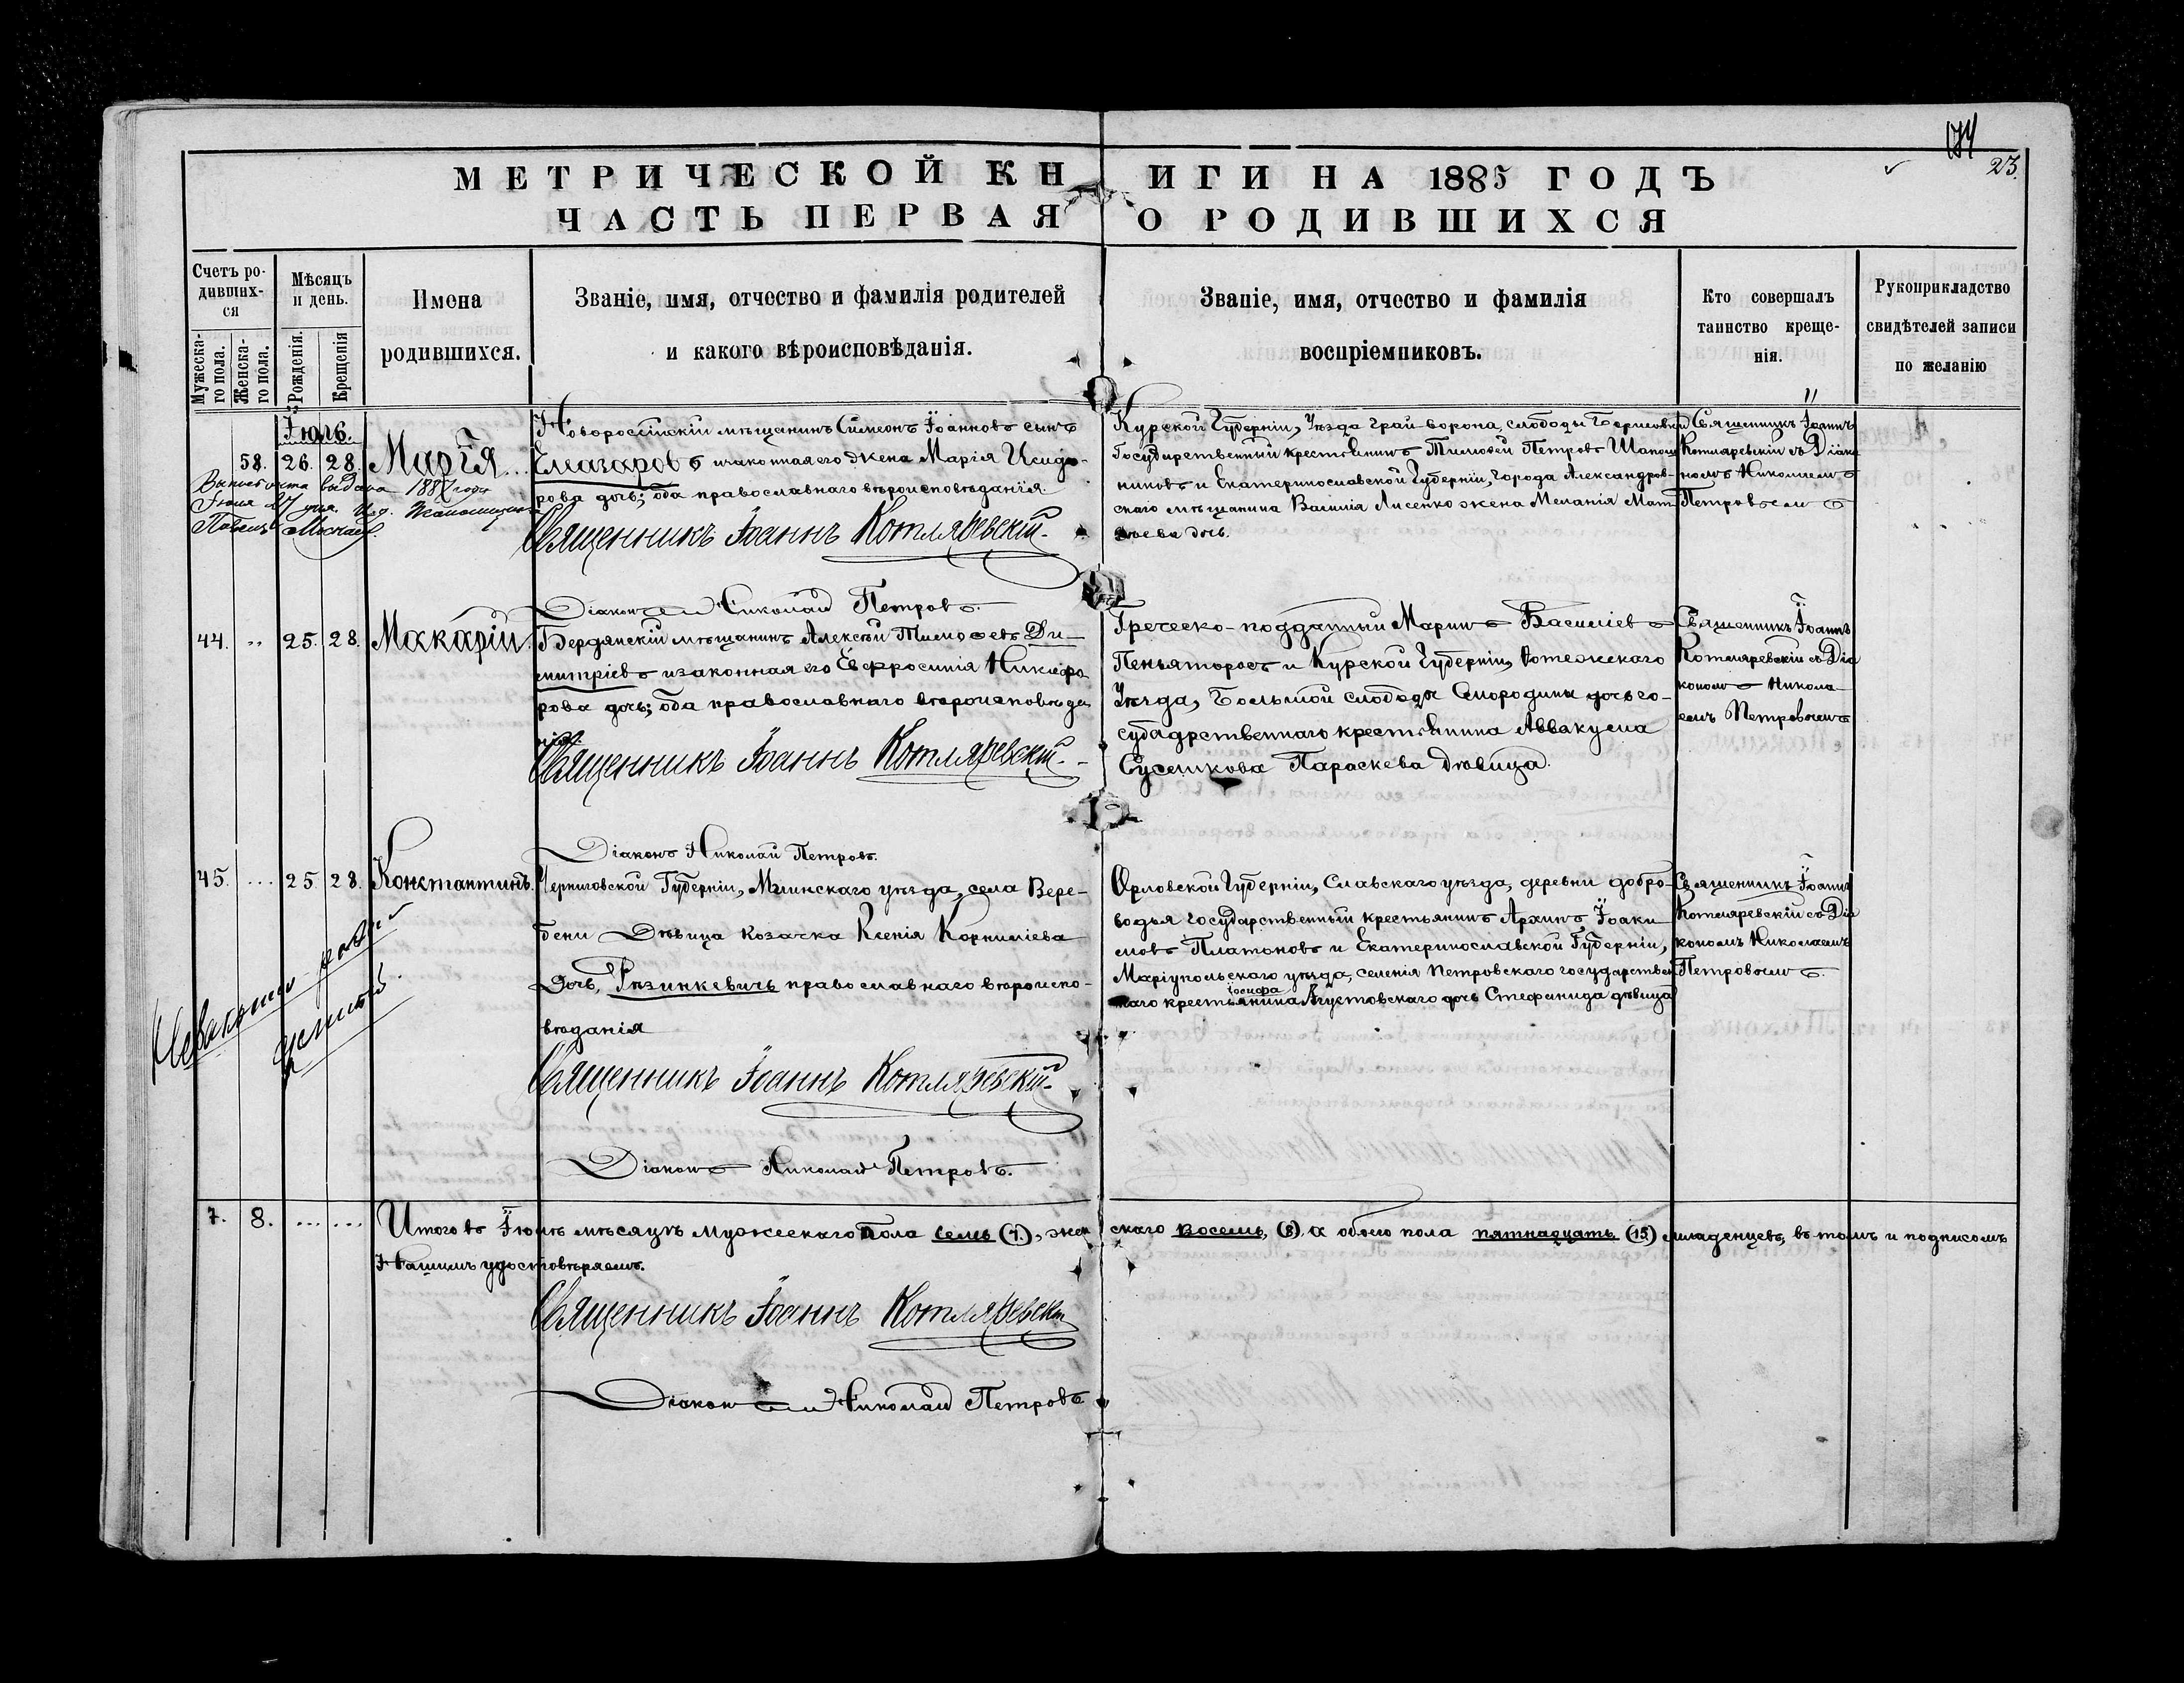 174
23.
МЕТРИЧЕСКОЙ КНИГИ НА 1885 ГОДЪ
ЧАСТЬ ПЕРВАЯ О РОДИВШИХСЯ
Счетъ родивших-ся
Мужеска-го пола.
Женска-го пола.
Мѣсяцъ и день.
Рожденія.
Крещенія
Имена
родившихся.
Званіе, имя, отчество и фамилія родителей
и какого вѣроисповѣданія.
Званіе, имя, отчество и фамилія
воспріемниковъ.
Кто совершалъ
таинство креще-
нія.
Рукоприкладство
свидѣтелей записи
по желанію
Іюль.
58. 26. 28. Марія
Новороссійскій мѣщанинъ Симеонъ Іоанновъ сынъ
Елиазаровъ и законная его жена Марія Исидо-
рова дочь; оба православнаго вѣроисповѣданія.
Священникъ Іоаннъ Котляревскій.
Діаконъ Николай Петровъ.
Курской Губерніи, Уѣзда Грайворона, слободы
Государственный крестьянинъ Тимофей Петровъ
никовъ и Екатеринославской Губерніи, Города Александров-
скаго мѣщанина Василія Лисенко жена Меланія Мат
ѳеева дочь.
Священникъ Іоаннъ
Котляревскій съ Діако
номъ Николаемъ
Петровымъ
выдана 1887 года
Іюля 27 дня.
44. .. 25. 28. Макарій.
Бердянскій мѣщанинъ Алексѣй Тимофеевъ Ди-
митріевъ и законная его Евфросинія Никифо
рова дочь; оба православнаго вѣроисповѣда
нія.
Священникъ Іоаннъ Котляревскій.
Діаконъ Николай Петровъ.
Греческо-подданный Маринъ Василіевъ
Пеньяторосъ и Курской Губерніи,
Уѣзда, Большой слободы Смородины дочь го-
сударственнаго крестьянина Аввакума
Сусликова Параскева дѣвица.
Священникъ Іоаннъ
Котляревскій съ Діа
кономъ Никола
емъ Петровымъ
45. ... 25. 28. Константинъ.
Черниговской Губерніи, Мглинскаго уѣзда, села Вере-
Дѣвица козачка Ксенія Корниліева
Дочь, Рѣзинкевичъ православнаго вѣроиспо-
вѣданія
Священникъ Іоаннъ Котляревскій.
Діаконъ Николай Петровъ.
Орловской Губерніи, Сѣвскаго уѣзда, деревни добро-
водья Государственный крестьянинъ Архипъ Іоаки
мовъ Платоновъ и Екатеринославской Губерніи,
Маріупольскаго уѣзда, селенія Петровскаго государствен
наго крестьянина Іосифа Августовскаго дочь Стефанида дѣвица
Священникъ Іоаннъ
Котляревскій съ Діа
кономъ Николаемъ
Петровымъ.
7. 8. ... ... Итого въ Іюлѣ мѣсяцѣ мужескаго пола семь (7.), жен скаго восемь, (8), а обоего пола пятнадцать (15) младенцевъ, въ томъ и подписомъ
Нашимъ удостовѣряемъ.
Священникъ Іоаннъ Котляревскій
Діаконъ Николай Петровъ